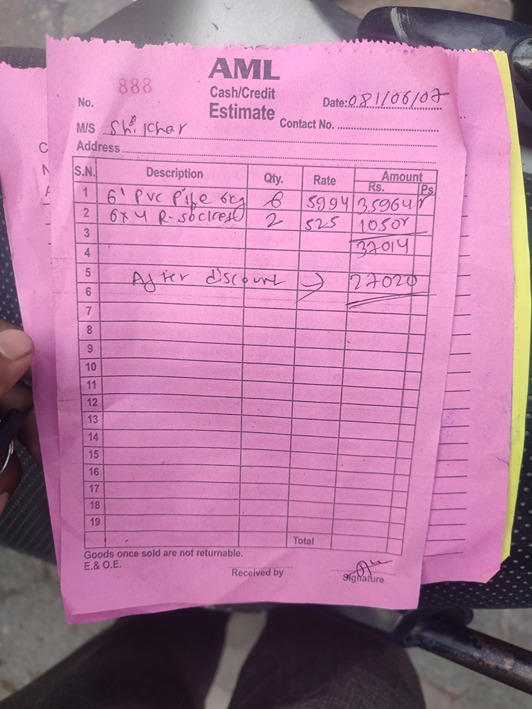 AML
888
Cash/Credit
No. Estimate Date: 081/06/07
M/S Shikhar Contact No.
Address
S.N. Description Qty. Rate Amount
Rs. Ps
1 6" PVC Pipe 6kg 6 5994 35964
2 6x4 R-socket 2 525 1050
3 37014
4
5 After discount → 27020
6
7
8
9
10
11
12
13
14
15
16
17
18
19
Total
Goods once sold are not returnable.
E.& O.E.
Received by Signature